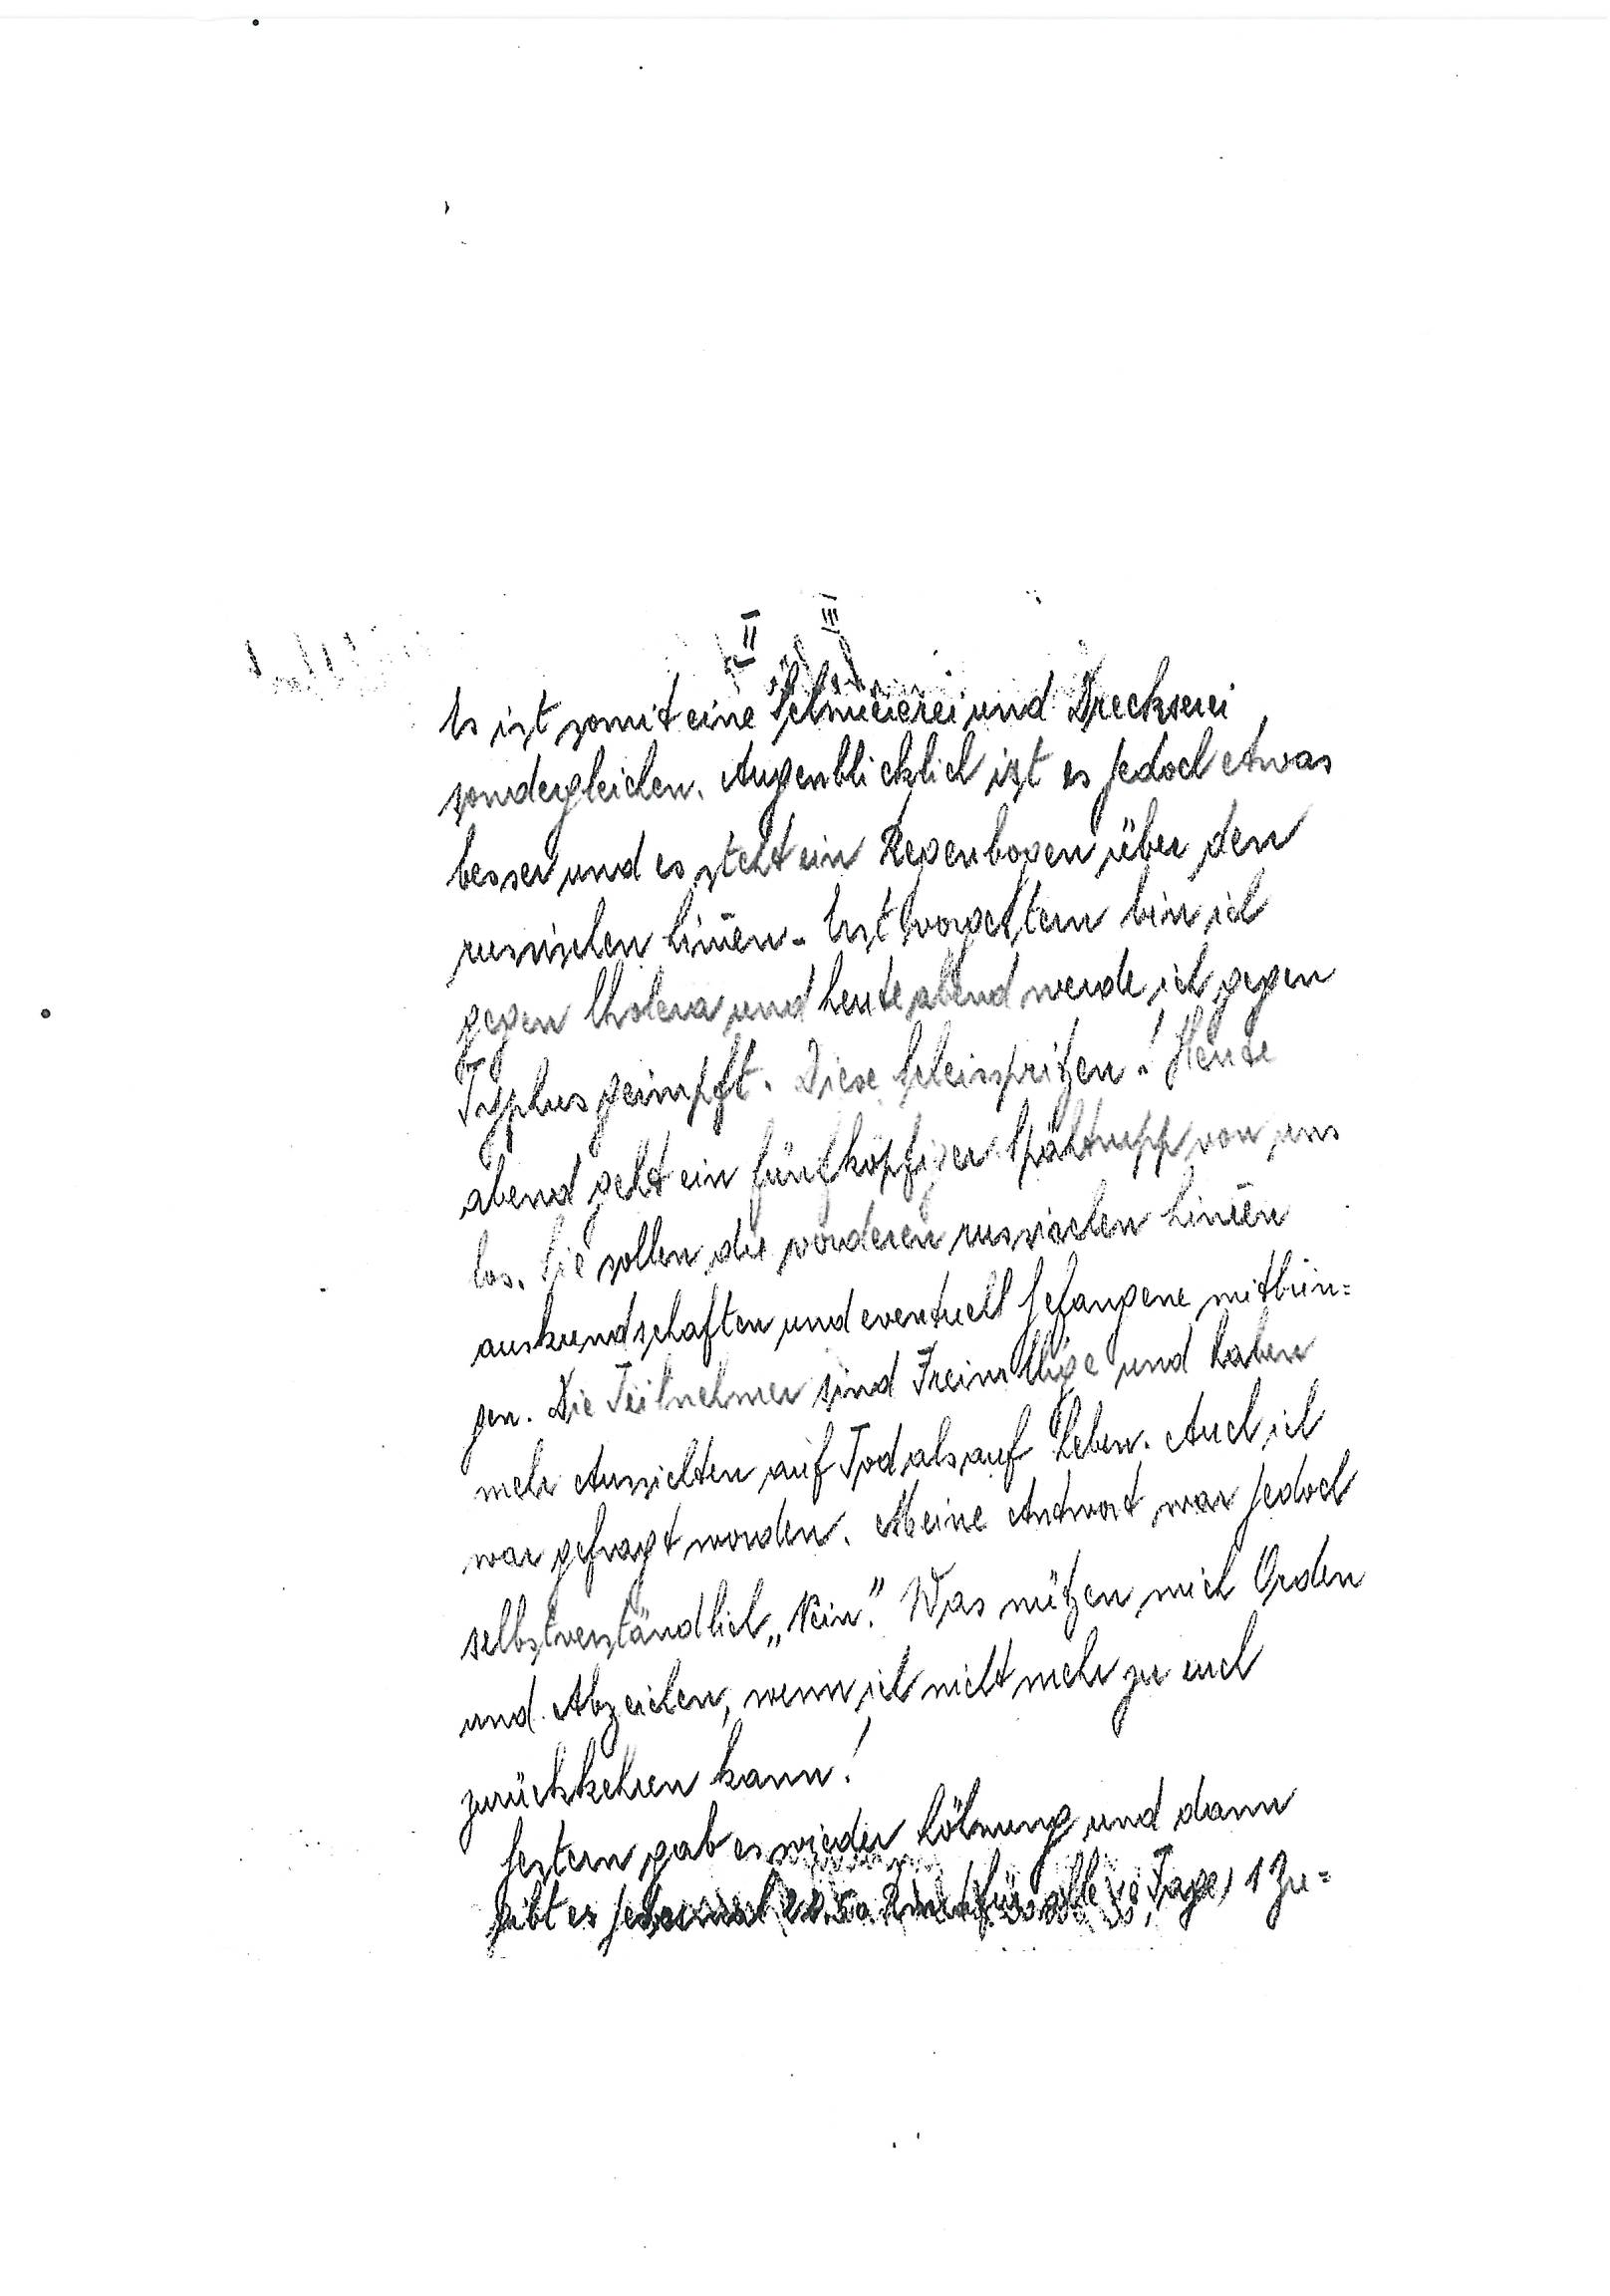 II III
Es ist somit eine Schmiererei und Dreckserei
sondergleichen. Augenblicklich ist es jedoch etwas
besser und es steht ein Regenbogen über den
russischen Linien. Erst vorgestern bin ich
gegen Cholera und heute abend werde ich gegen
Typhus geimpft. Diese Scheisspritzen! Heute
abend geht ein fünfköpfiger Spähtrupp von uns
los. Sie sollen die vorderen russischen Linien
auskundschaften und eventuell Gefangene mitbrin=
gen. Die Teilnehmer sind Freiwillige und haben
mehr Aussichten auf Tod als auf Leben. Auch ich
war gefragt worden. Meine Antwort war jedoch
selbstverständlich „Nein." Was nützen mich Orden
und Abzeichen, wenn ich nicht mehr zu euch
zurückkehren kann!
Gestern gab es wieder Löhnung und dann
gibt es jedesmal für alle Tage, 1 Zu=